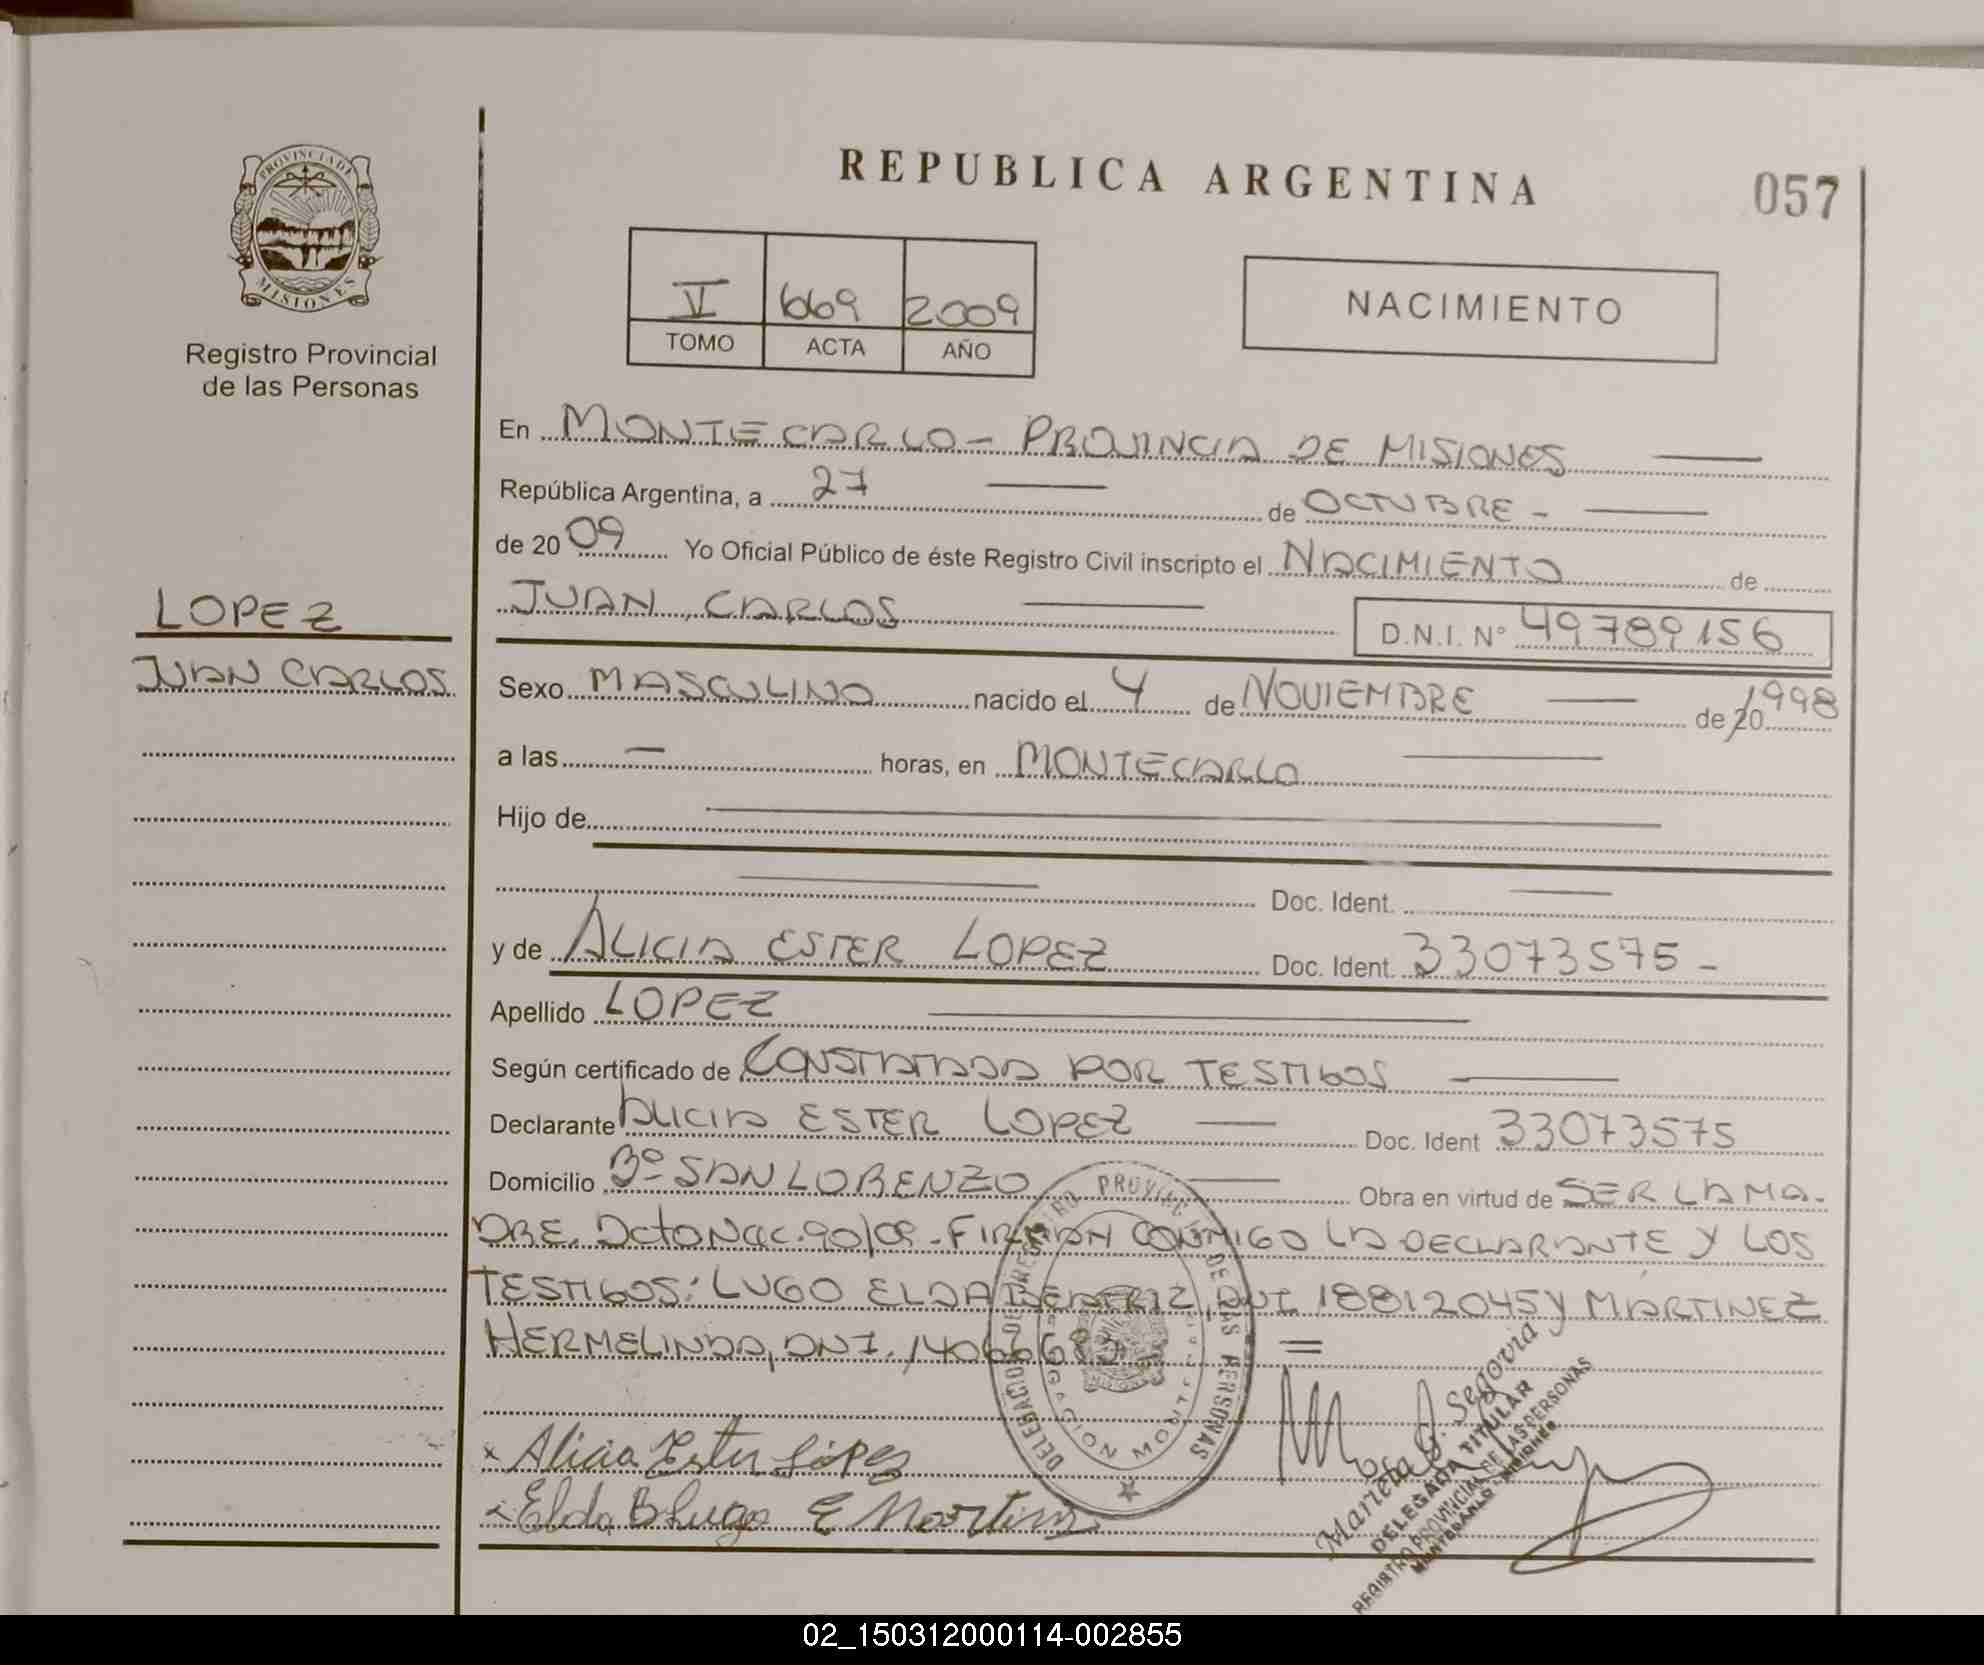 REPUBLICA ARGENTINA
057
PROVINCIA DE
MISIONES
Registro Provincial
de las Personas
V 669 2009
TOMO ACTA AÑO
NACIMIENTO
En MONTECARLO - PROVINCIA DE MISIONES
República Argentina, a 27 de OCTUBRE -
de 20 09 Yo Oficial Público de éste Registro Civil inscripto el NACIMIENTO de
JUAN CARLOS
D.N.I. N° 49789156
LOPEZ
JUAN CARLOS
Sexo MASCULINO nacido el 4 de NOVIEMBRE de 20 1998
a las — horas, en MONTECARLO
Hijo de
Doc. Ident.
y de ALICIA ESTER LOPEZ Doc. Ident. 33073575 -
Apellido LOPEZ
Según certificado de CONSTATADA POR TESTIGOS
Declarante ALICIA ESTER LOPEZ Doc. Ident 33073575
Domicilio Bº SAN LORENZO Obra en virtud de SER LA MA-
DRE. DctoNac. 90/09 - FIRMAN CONMIGO LA DECLARANTE Y LOS
TESTIGOS: LUGO ELDA BEATRIZ, DNI. 18812045 Y MARTINEZ
HERMELINDA, DNI.
x Alicia Ester López
x Elda B Lugo E Martinez
Marieta G. Segovia
DELEGADA TITULAR
REGISTRO PROVINCIAL DE LAS PERSONAS
02_150312000114-002855